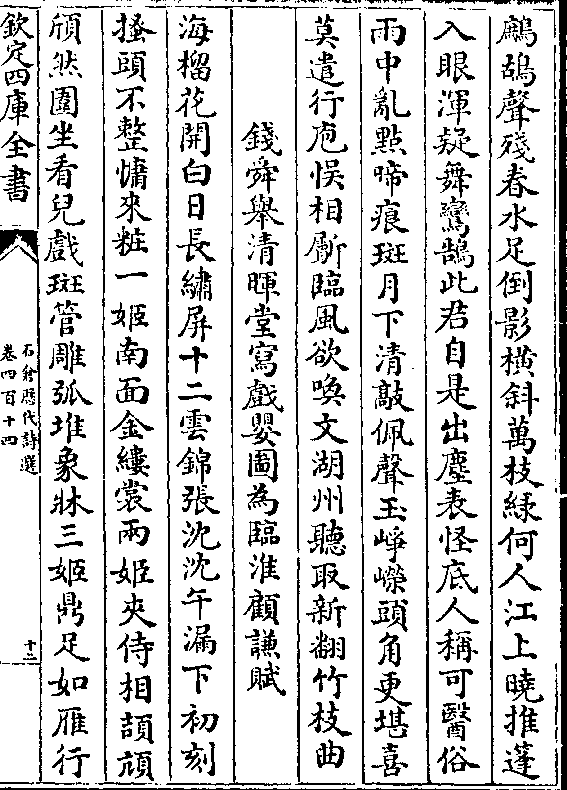 鷓鴣聲殘春水足倒影橫斜萬枝緑何人江上曉推蓬
入眼渾疑舞鸞鵠此君自是出塵表怪底人稱可醫俗
雨中亂點啼痕斑月下清敲佩聲玉崢嶸頭角更堪喜
莫遣行庖悞相劚臨風欲喚文湖州聽取新翻竹枝曲
錢舜舉清暉堂寫戲嬰圖為臨淮顧謙賦
海榴花開白日長繡屏十二雲錦張沈沈午漏下初刻
搔頭不整慵來粧一姬南面金縷裳兩姬夾侍相頡頏
頎然圍坐看兒戲斑管雕弧堆象牀三姬鼎足如雁行
欽定四庫全書
石倉歷代詩選
卷四百十四
十二